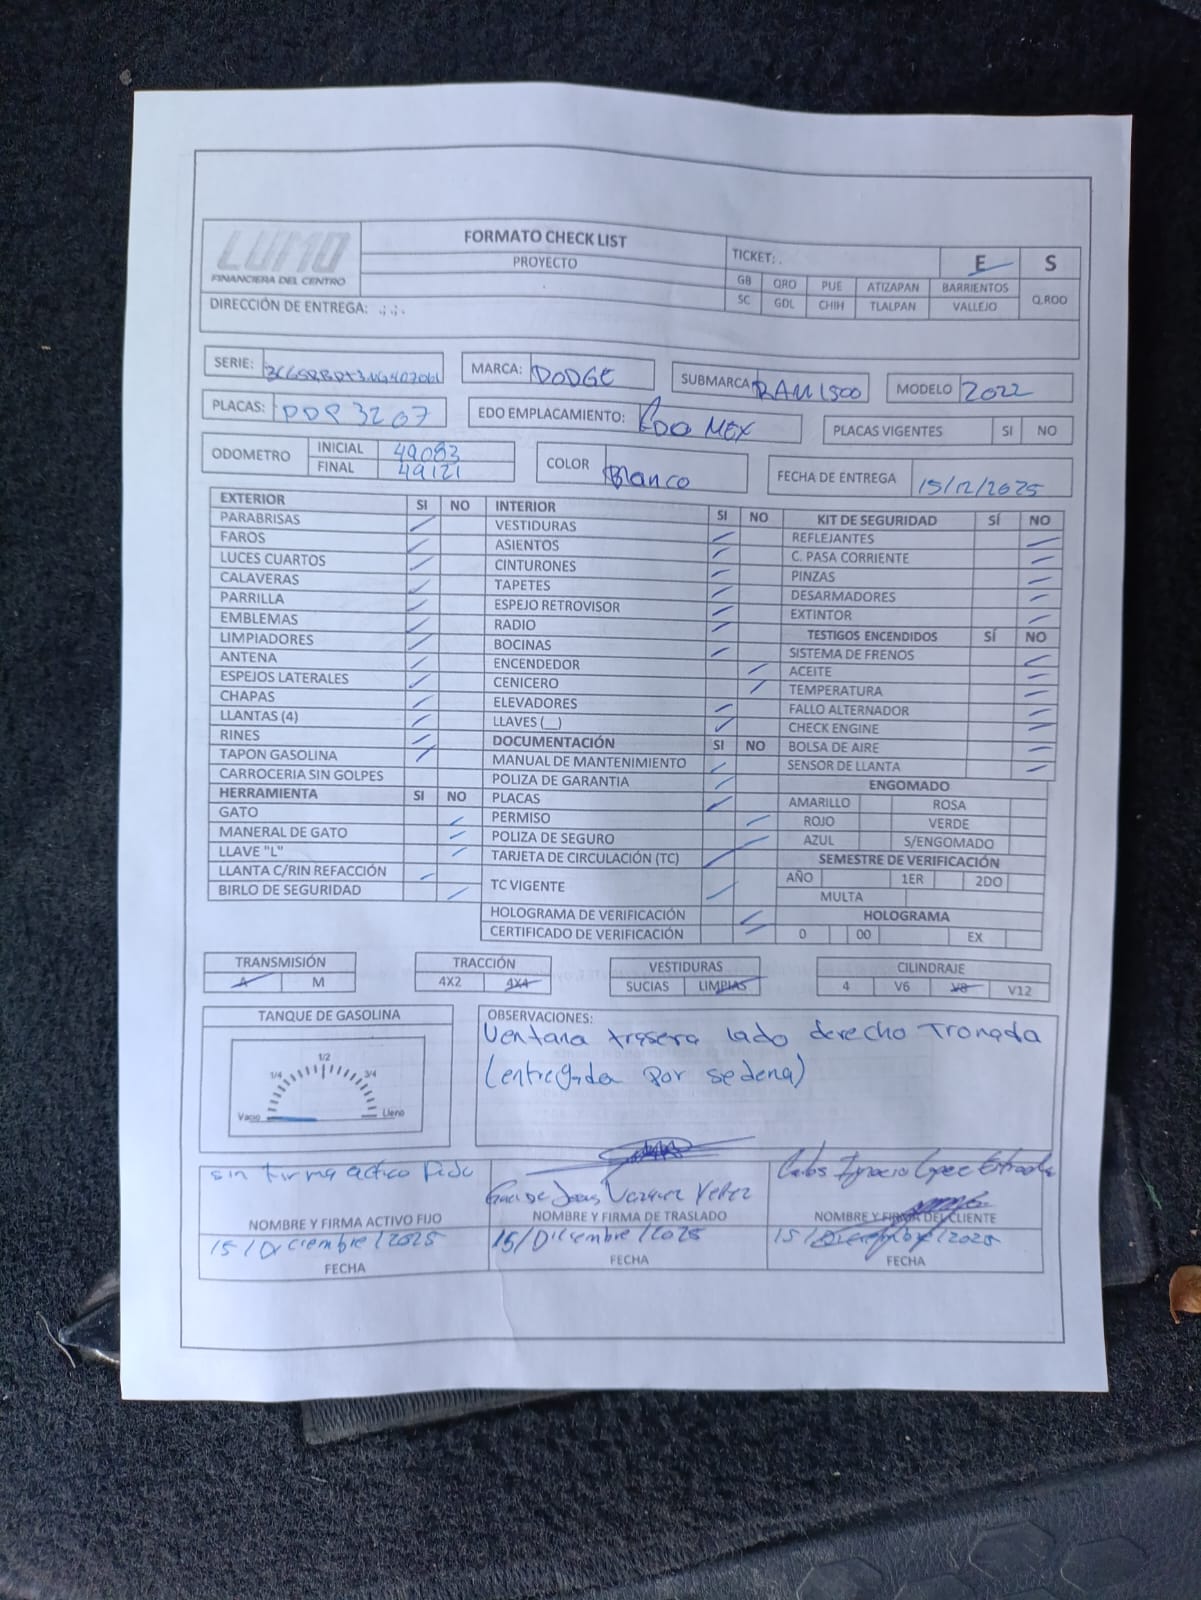 LUMO
FINANCIERA DEL CENTRO
FORMATO CHECK LIST
PROYECTO
TICKET: .
E S
GB QRO PUE ATIZAPAN BARRIENTOS
SC GDL CHIH TLALPAN VALLEJO Q.ROO
DIRECCIÓN DE ENTREGA: .;.;.
SERIE:
MARCA: DODGE
SUBMARCA RAM 1500
MODELO 2022
PLACAS:
EDO EMPLACAMIENTO: EDO MEX
PLACAS VIGENTES SI NO
ODOMETRO INICIAL 49083
FINAL 49121
COLOR Blanco
FECHA DE ENTREGA 15/12/2025
EXTERIOR SI NO
PARABRISAS
FAROS
LUCES CUARTOS
CALAVERAS
PARRILLA
EMBLEMAS
LIMPIADORES
ANTENA
ESPEJOS LATERALES
CHAPAS
LLANTAS (4)
RINES
TAPON GASOLINA
CARROCERIA SIN GOLPES
HERRAMIENTA SI NO
GATO
MANERAL DE GATO
LLAVE "L"
LLANTA C/RIN REFACCIÓN
BIRLO DE SEGURIDAD
INTERIOR SI NO
VESTIDURAS
ASIENTOS
CINTURONES
TAPETES
ESPEJO RETROVISOR
RADIO
BOCINAS
ENCENDEDOR
CENICERO
ELEVADORES
LLAVES (__)
DOCUMENTACIÓN SI NO
MANUAL DE MANTENIMIENTO
POLIZA DE GARANTIA
PLACAS
PERMISO
POLIZA DE SEGURO
TARJETA DE CIRCULACIÓN (TC)
TC VIGENTE
HOLOGRAMA DE VERIFICACIÓN
CERTIFICADO DE VERIFICACIÓN
KIT DE SEGURIDAD SÍ NO
REFLEJANTES
C. PASA CORRIENTE
PINZAS
DESARMADORES
EXTINTOR
TESTIGOS ENCENDIDOS SÍ NO
SISTEMA DE FRENOS
ACEITE
TEMPERATURA
FALLO ALTERNADOR
CHECK ENGINE
BOLSA DE AIRE
SENSOR DE LLANTA
ENGOMADO
AMARILLO ROSA
ROJO VERDE
AZUL S/ENGOMADO
SEMESTRE DE VERIFICACIÓN
AÑO 1ER 2DO
MULTA
HOLOGRAMA
0 00 EX
TRANSMISIÓN
A M
TRACCIÓN
4X2 4X4
VESTIDURAS
SUCIAS LIMPIAS
CILINDRAJE
4 V6 V8 V12
TANQUE DE GASOLINA
1/4 1/2 3/4
Vacio Lleno
OBSERVACIONES:
Ventana trasera lado derecho Tronada
(entregada por sedena)
sin firma activo fijo
NOMBRE Y FIRMA ACTIVO FIJO
15/Diciembre/2025
FECHA
de Jesus Vazquez
NOMBRE Y FIRMA DE TRASLADO
15/Diciembre/2025
FECHA
Carlos Ignacio Lopez Estrada
NOMBRE Y FIRMA DEL CLIENTE
15/Diciembre/2025
FECHA